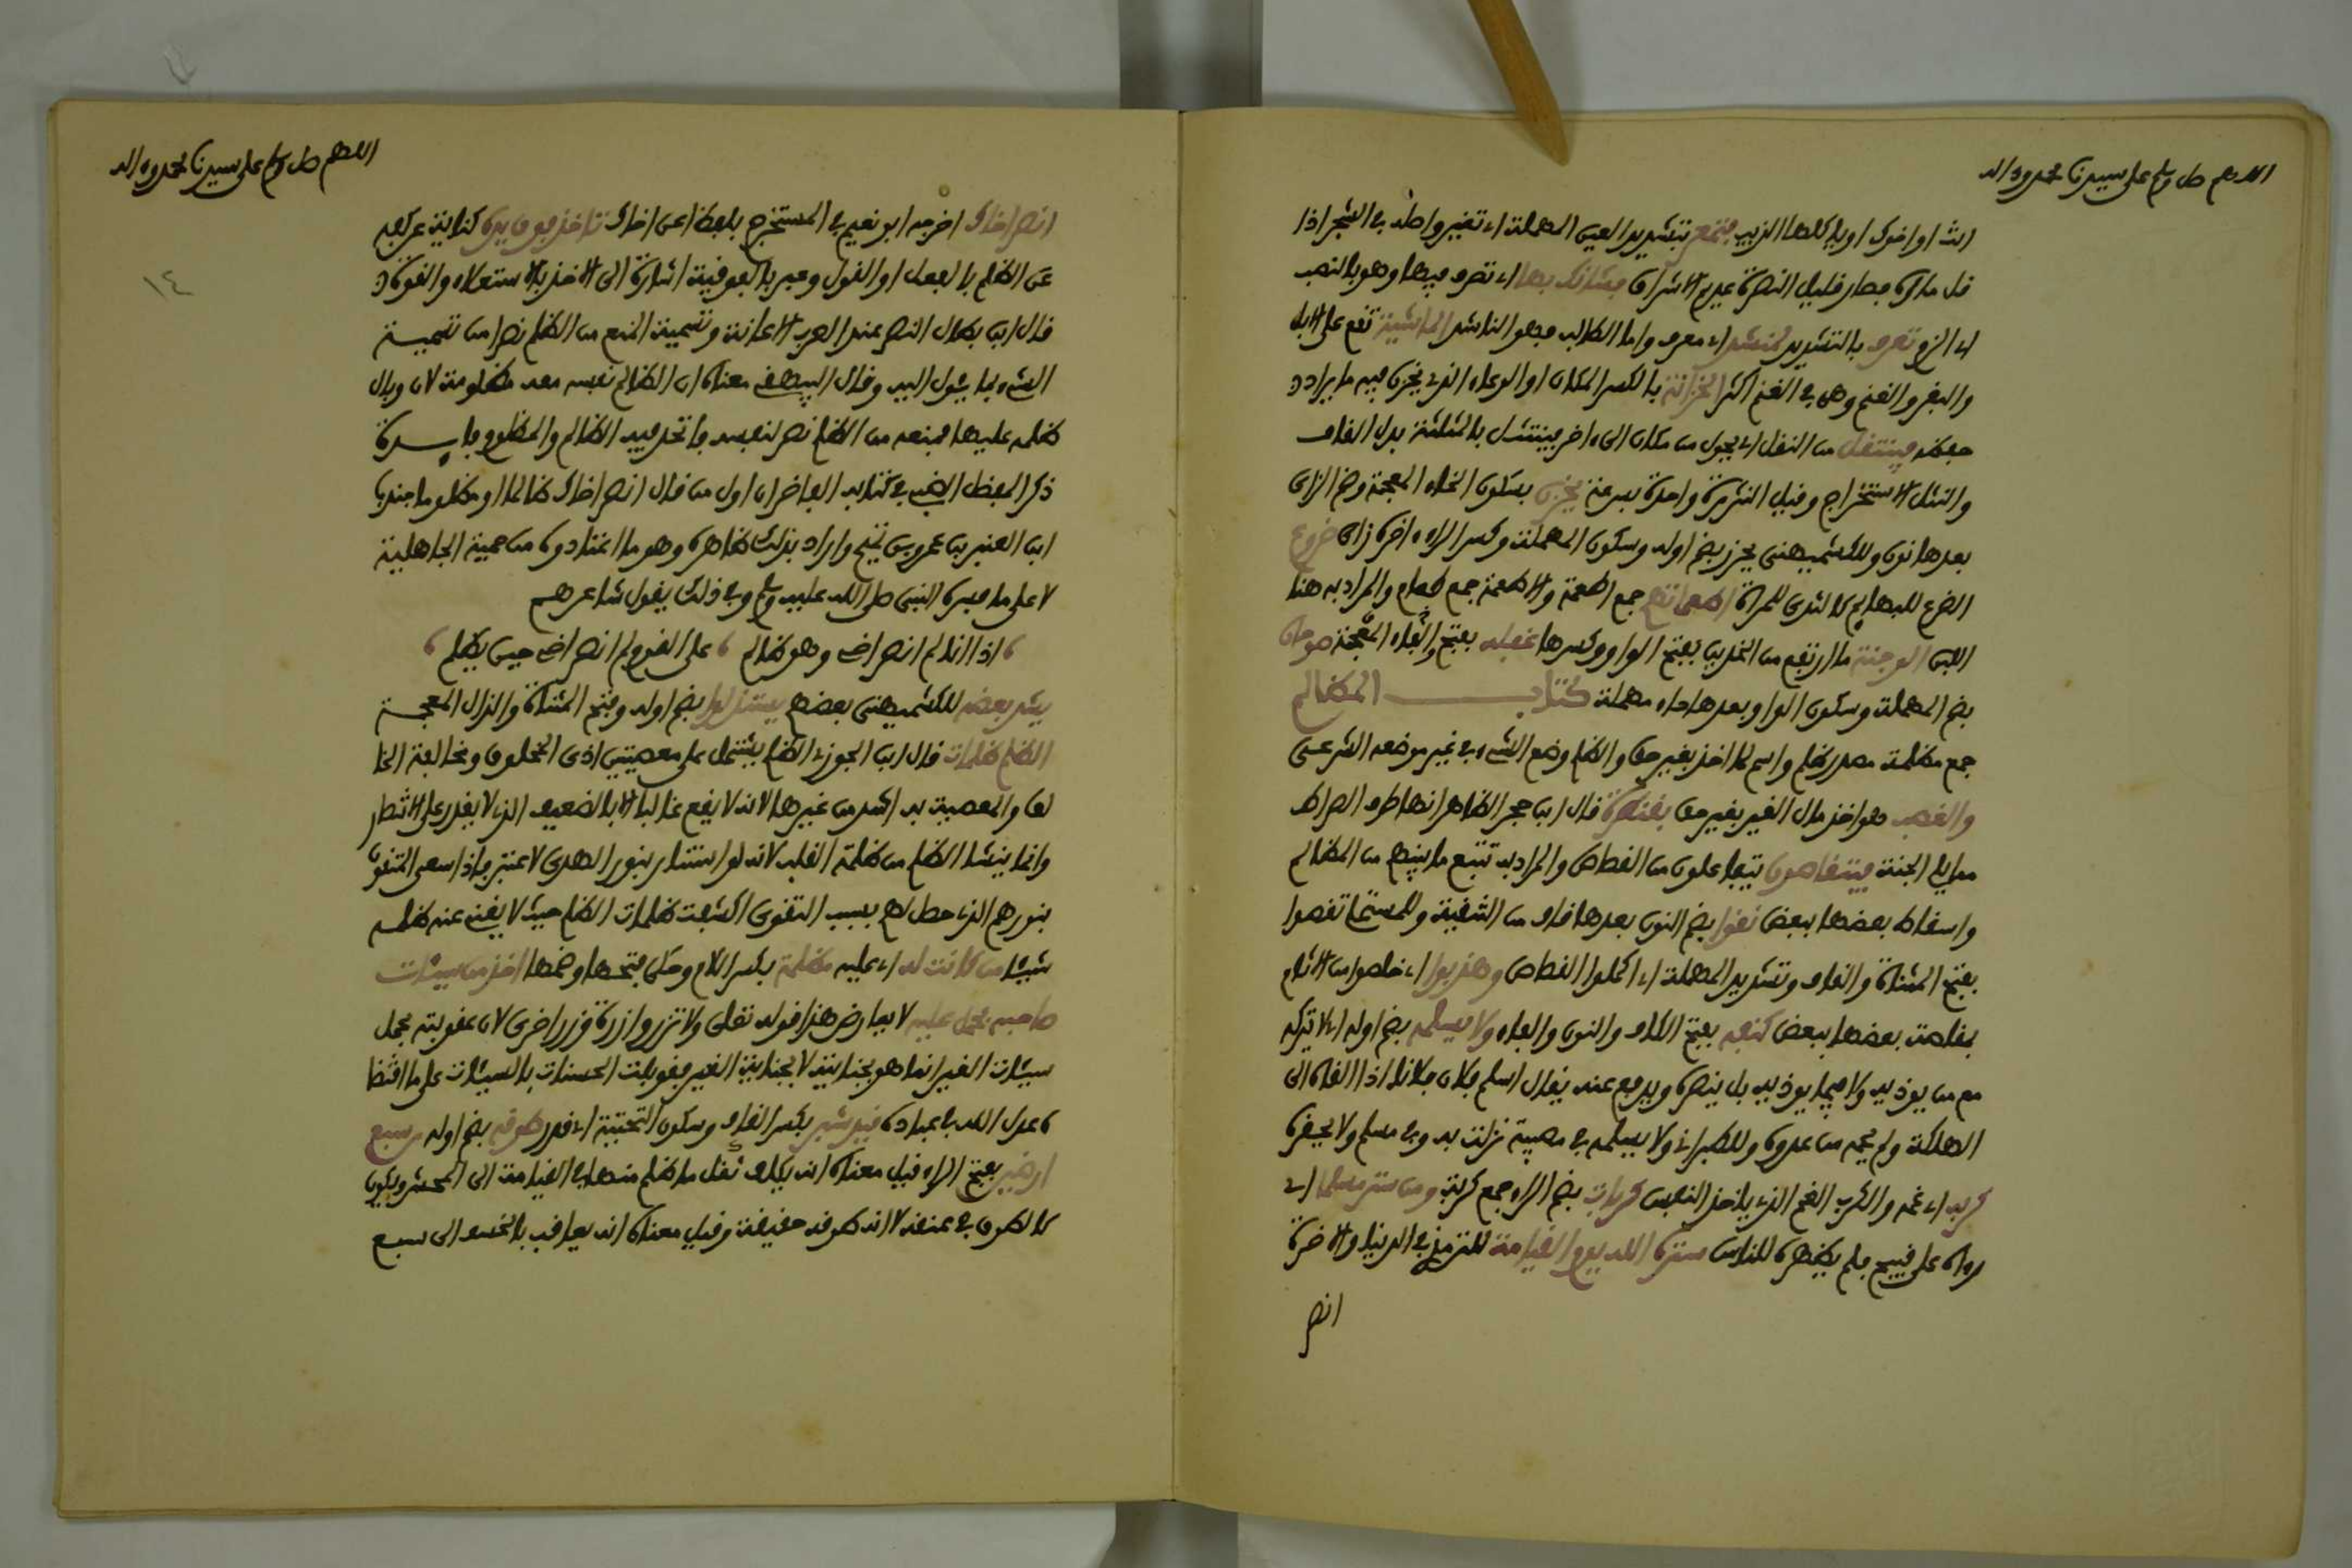 اللهم صل وسلم على سيدنا محمد وءاله
لك او لاخيك او للذئب فتمعر بتشديد العين المهملة اي تغير واصله في الشجر اذا
قل ماؤه فصار قليل النضرة عديم الاشراق فشانك بها اي تصرف فيها وهو بالنصب
اي الزم تعرف بالتشديد لمنشد اي معرف واما الطالب فهو الناشد الماشية تقع على الابل
والبقر والغنم وهي في الغنم اكثر الخزانة بالكسر المكان او الوعاء الذي يخزن فيه ما يراد
حفظه فينتقل من النقل اي يحول من مكان الى ءاخر ينتثل بالمثلثة بدل القاف
والنثل الاستخراج وقيل النثرة واحدة بسرعة يخزن بسكون الخاء المعجمة وضم الزاي
بعدها نون وللكشميهني يحرز بضم اوله وسكون المهملة وكسر الراء ءاخره زاي ضروع
الضرع للبهايم كالثدي للمراة اطعماتهم جمع اطعمة والاطعمة جمع طعام والمراد به هنا
اللبن الوجنة ما ارتفع من الخدين بفتح الواو وكسرها غفله بفتح الفاء المعجمة صوحان
بضم المهملة وسكون الواو وبعدها حاء مهملة كتاب المظالم
جمع مظلمة مصدر ظلم واسم لما اخذ بغير حق والظلم وضع الشيء في غير موضعه الشرعي
والغصب هو اخذ مال الغير بغير حق بقنطرة قال ابن حجر الظاهر انها طرف الصراط
مما يلي الجنة فيتقاصون يتفاعلون من القصاص والمراد به تتبع ما بينهم من المظالم
واسقاط بعضها ببعض نقوا بضم النون بعدها قاف من التنقية وللمستملي تقصوا
بفتح المثناة والقاف وتشديد المهملة اي اكملوا القصاص وهذبوا اي خلصوا من الاثام
بمقاصة بعضها ببعض كنفه بفتح الكاف والنون والفاء ولا يسلمه بضم اوله اي لا يتركه
مع من يوذيه ولا فيما يوذيه بل ينصره ويدفع عنه يقال اسلم فلان فلانا اذا القاه الى
الهلكة ولم يحمه من عدوه وللطبراني ولا يسلمه في مصيبة نزلت به وفي مسلم ولا يحقره
كربة اي غمة والكرب الغم الذي ياخذ النفس كربات بضم الراء جمع كربة ومن ستر مسلما اي
رءاه على قبيح فلم يظهره للناس ستره الله يوم القيامة للترمذي في الدنيا والاخرة
انصر
اللهم صل وسلم على سيدنا محمد وءاله
١٤
انصر اخاك اخرجه ابو نعيم في المستخرج بلفظ اعن اخاك تاخذ فوق يديه كناية عن كفه
عن الظلم بالفعل او القول وعبر بالفوقية اشارة الى الاخذ بالاستعلاء والقوة
قال ابن بطال النصر عند العرب الاعانة وتسمية المنع من الظلم نصرا من تسمية
الشيء بما يئول اليه وقال البيهقي معناه ان الظالم نفسه معه مظلومة لان وبال
ظلمه عليها فمنعه من الظلم نصر لنفسه فاتحد فيه الظالم والمظلوم فايدة
ذكر المفضل الضبي في كتابه الفاخر ان اول من قال انصر اخاك ظالما او مظلوما جندب
ابن العنبر بن عمرو بن تميم واراد بذلك ظاهره وهو ما اعتادوه من حمية الجاهلية
لا على ما فسره النبي صلى الله عليه وسلم وفي ذلك يقول شاعرهم
اذا انا لم انصر اخي وهو ظالم ، على القوم لم انصر اخي حين يظلم
يشد بعضه للكشميهني بعضهم يستذلوا بضم اوله وفتح المثناة والذال المعجمة
الظلم ظلمات قال ابن الجوزي الظلم يشتمل على معصيتين اخذ حق المخلوق ومخالفة الخا
لق والمعصية به اشد من غيرها لانه لا يقع غالبا الا بالضعيف الذي لا يقدر على الانتصار
وانما ينشا الظلم من ظلمة القلب لانه لو استنار بنور الهدى لاعتبر فاذا سعى المتقون
بنورهم الذي حصل لهم بسبب التقوى اكتنفت ظلمات الظلم حيث لا يغني عنه ظلمه
شيئا من كانت له اي عليه مظلمة بكسر اللام وحكي فتحها وضمها اخذ من سيئات
صاحبه فحمل عليه لا يعارض هذا قوله تعلى ولا تزر وازرة وزر اخرى لان عقوبته بحمل
سيئات الغير انما هو بجنايته لا بجناية الغير فقوبلت الحسنات بالسيئات على ما اقتضا
ه عدل الله في عباده قيد شبر بكسر القاف وسكون التحتية اي قدر طوقه بضم اوله من سبع
ارضين بفتح الراء قيل معناه انه يكلف نقل ما ظلم منها في القيامة الى المحشر ويكون
كالطوق في عنقه لا انه طوقه حقيقة وقيل معناه انه يعاقب بالخسف الى سبع